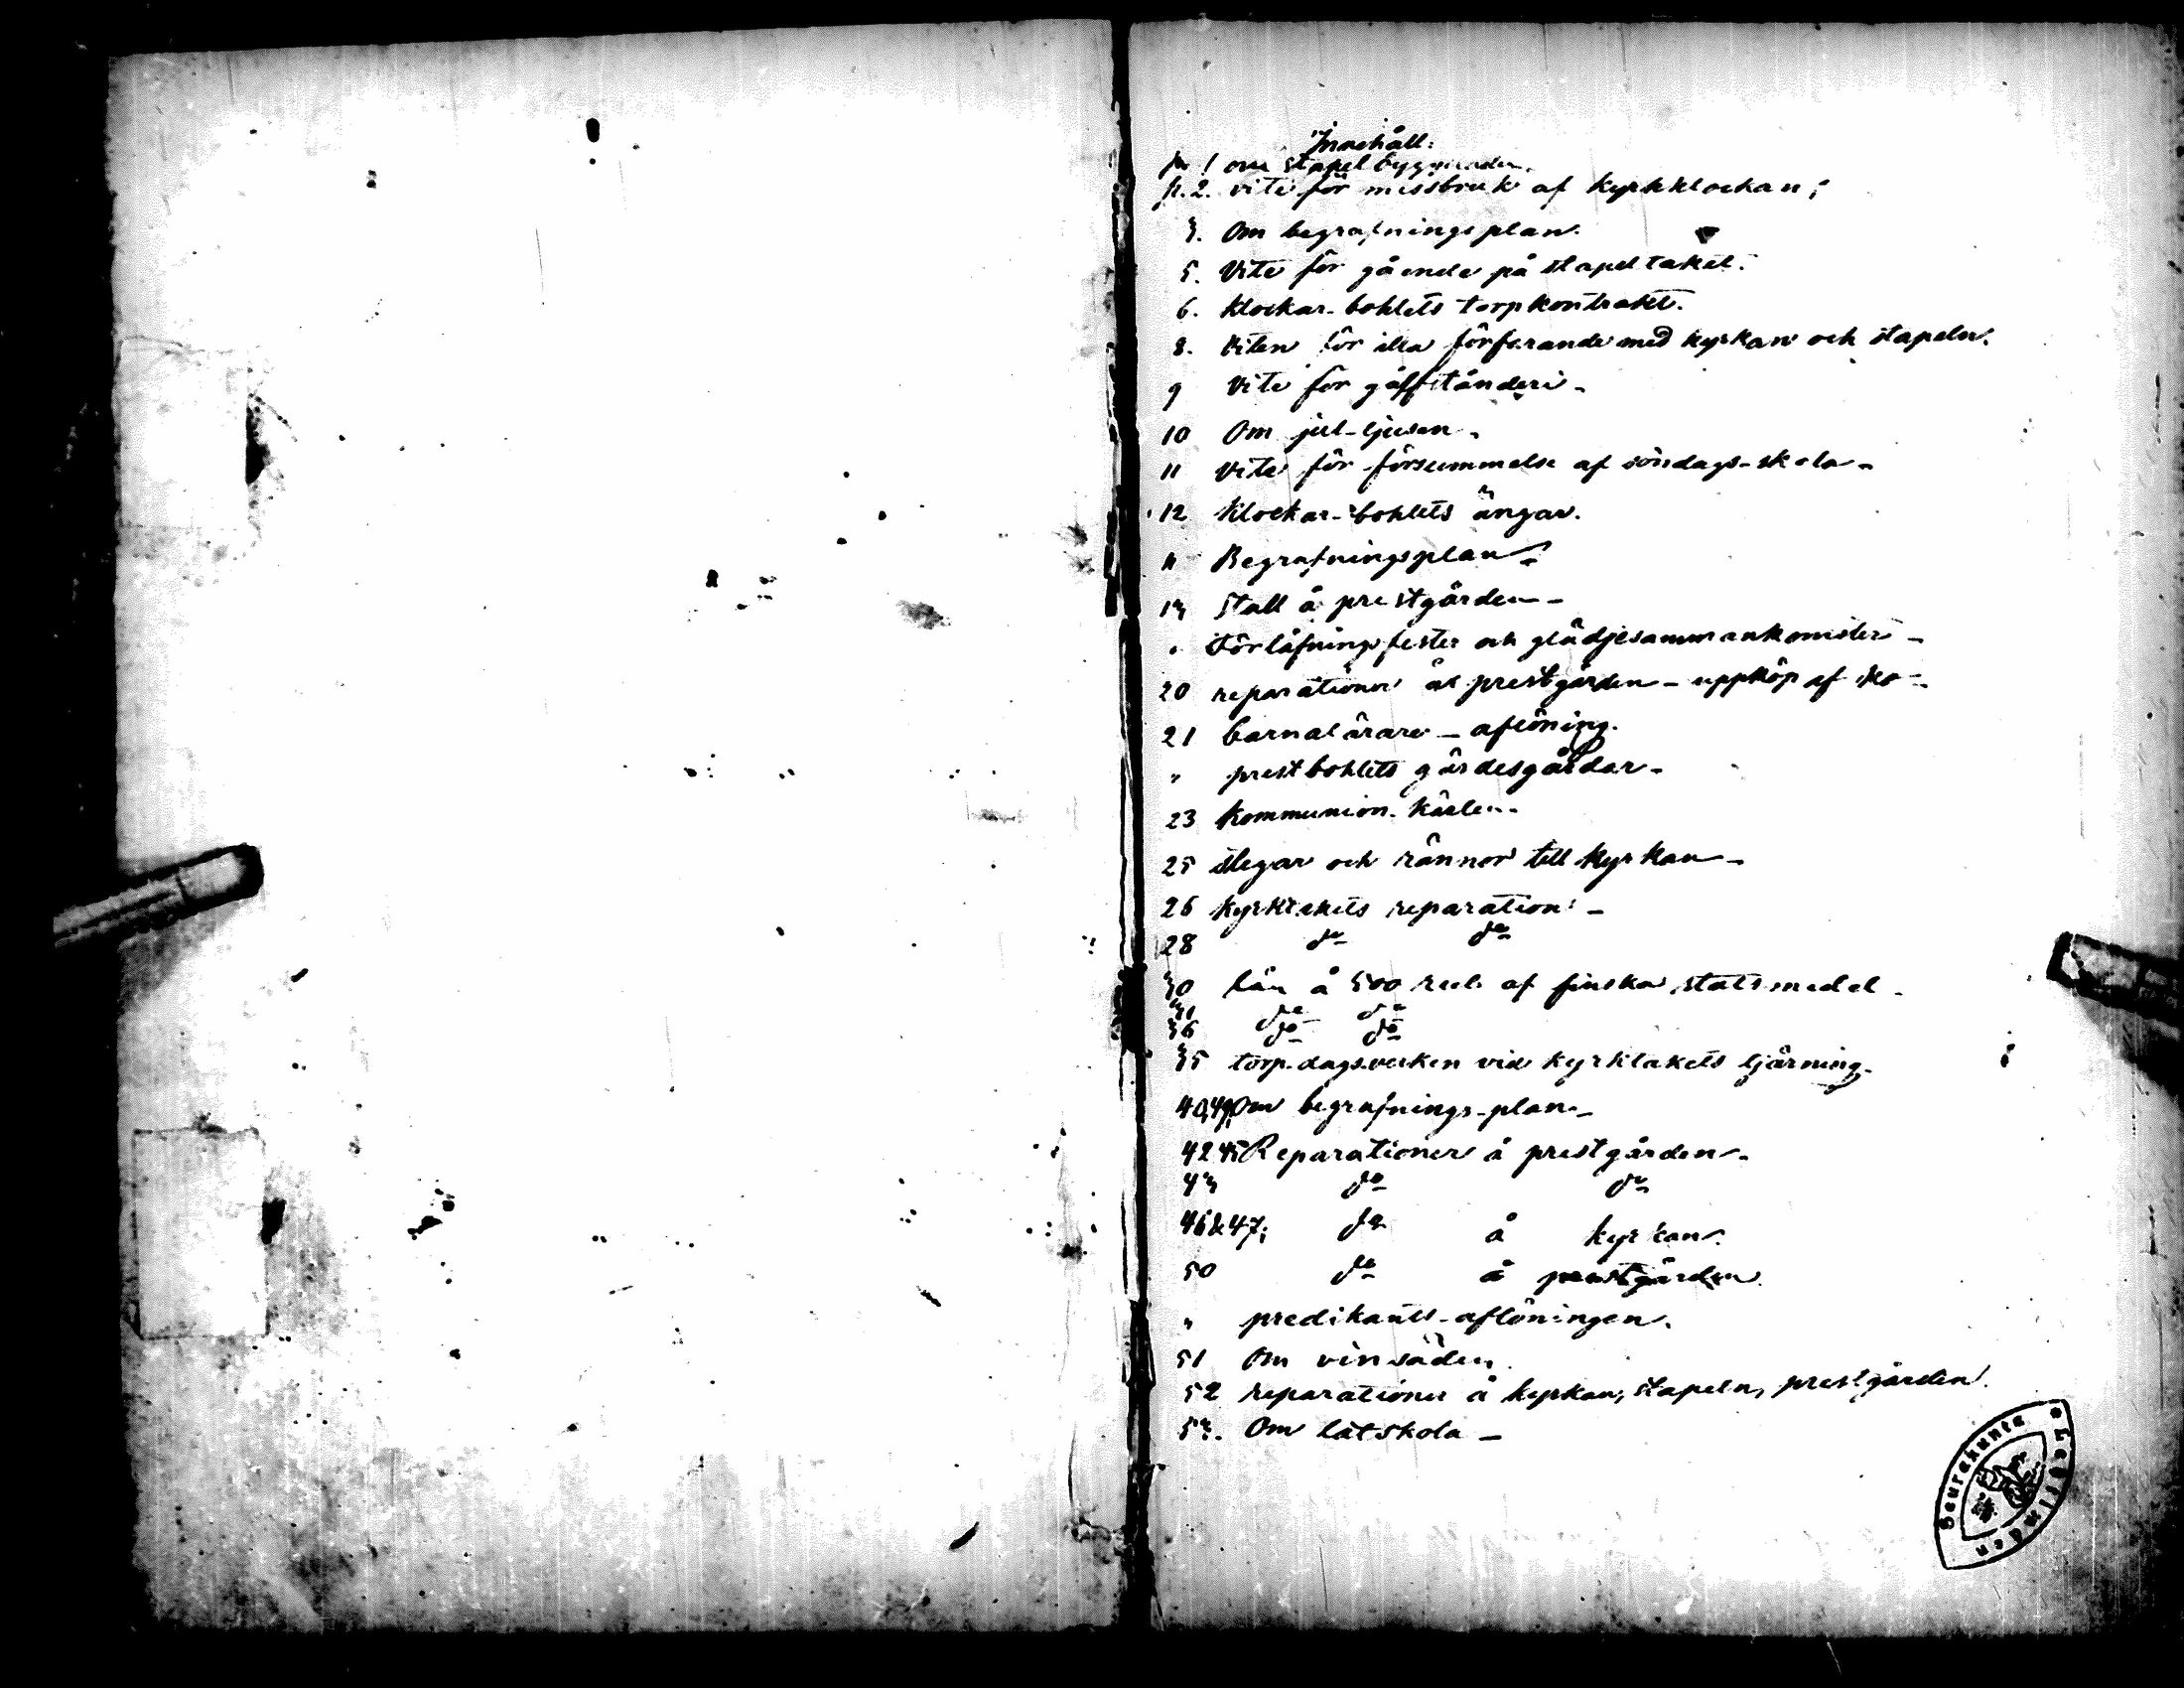 Innehåll:
p. 1 om stapel byggnaden.
p. 2. vite för missbruk af kyrkklockan;
3. Om begrafningsplan.
5. Vite för gående på stapeltaket.
6. Klockar-bohlets torpkontrakt.
8. Viten för illa förfarande med kyrkan och stapeln.
9 Vite för gåffstånderi -
10 Om jul-ljusen -
11 Vite för försummelse af söndags-skola -
12 Klockar-bohlets ängar.
" Begrafningsplan -
13 Stall å prestgården -
" Förlåfningsfester och glädjesammankomster -
20 reparationer å prestgården - uppköp af
21 barnalärare - aflöning.
" prestbohlets gärdesgårdar -
23 Kommunion-kärlen -
25 stegar och rännor till kyrkan -
26 kyrktakets reparation -
28 do do
30 lån å 500 rub. af finska statsmedel -
31 do do
36 do do
35 torp-dagsverken vid kyrktakets tjärning -
40,49, Om begrafnings-plan -
42 45 Reparationer å prestgården -
43 do do
46 & 47; do å kyrkan.
50 do å prestgården.
" predikants-aflöningen.
51 Om vinsäden.
52 reparationer å kyrkan, stapeln, prestgården.
53. Om lätskola -
Seurakunta *